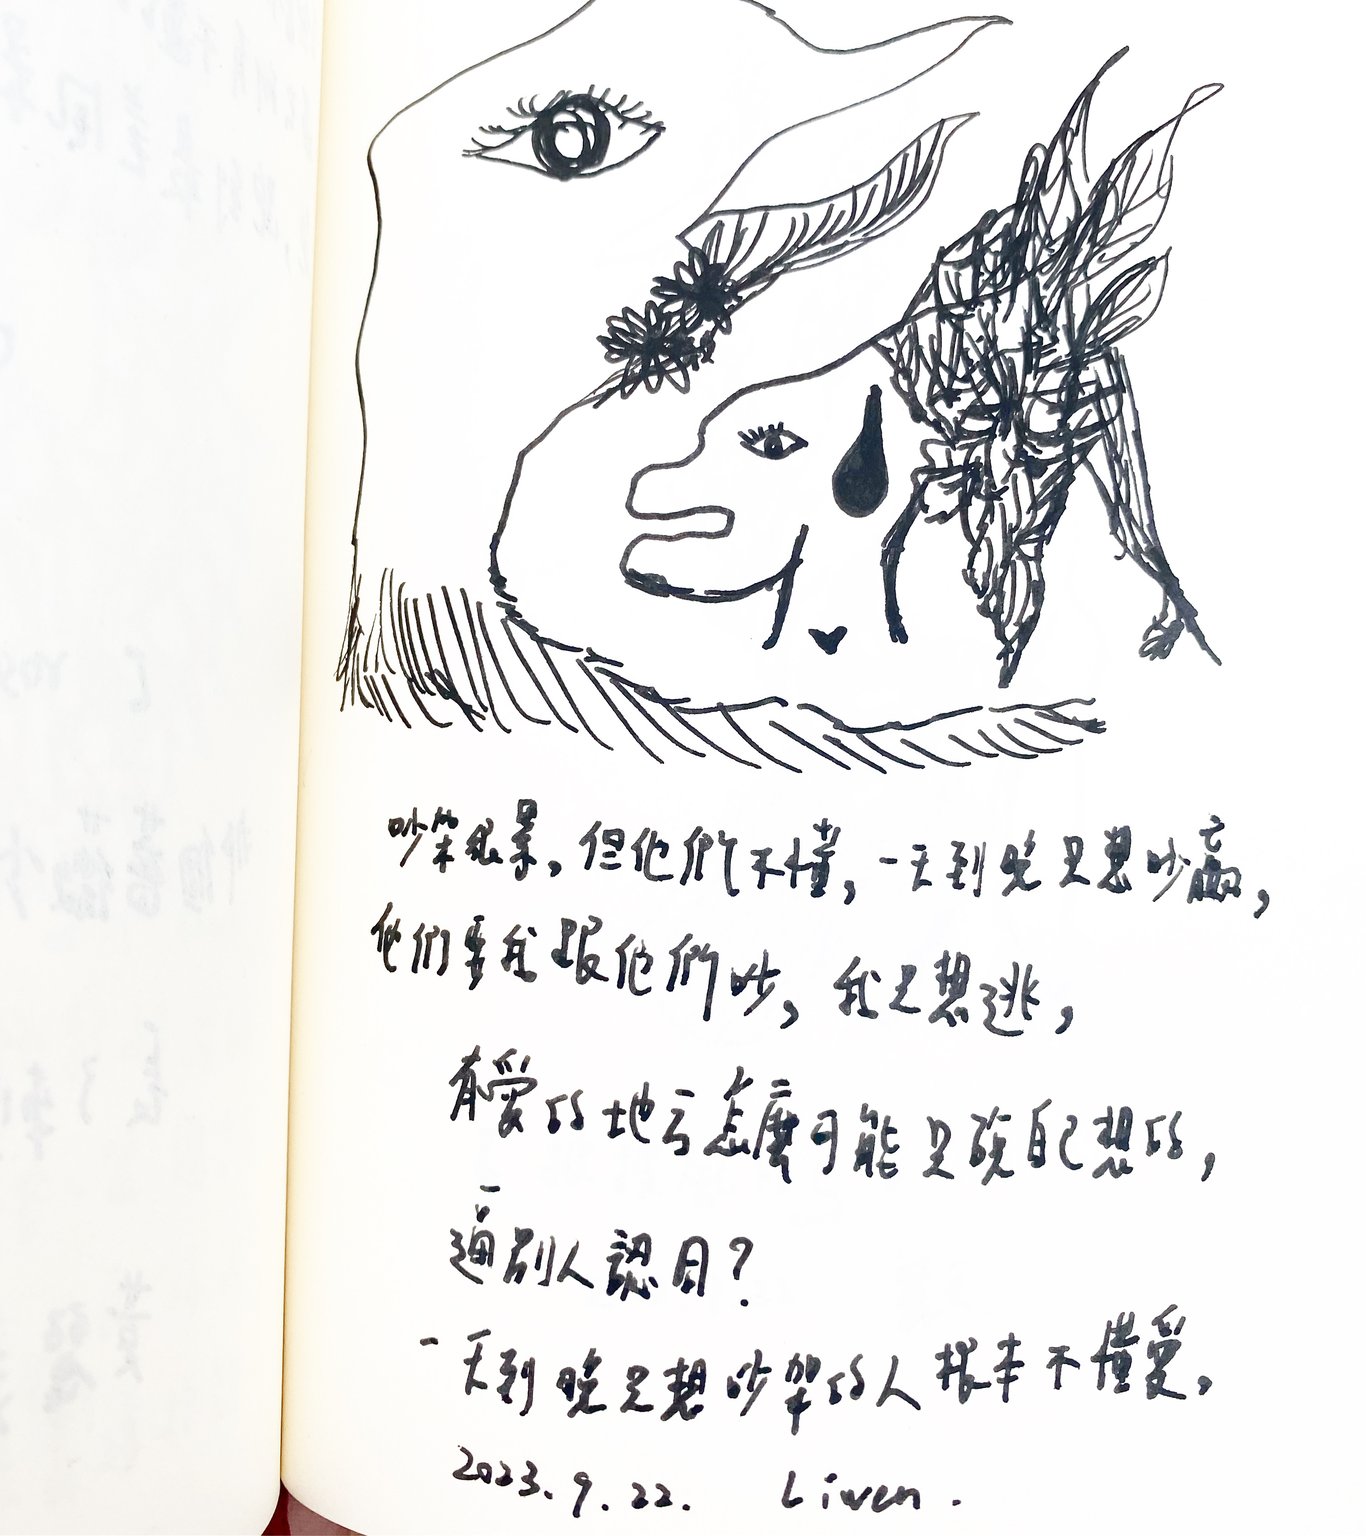 吵架很累，但他們不懂，一天到晚只想吵贏，
他們要我跟他們吵，我只想逃，
有愛的地方怎麼可能只說自己想的，
逼別人認同？
一天到晚只想吵架的人根本不懂愛。
2023.9.22. Liwen.